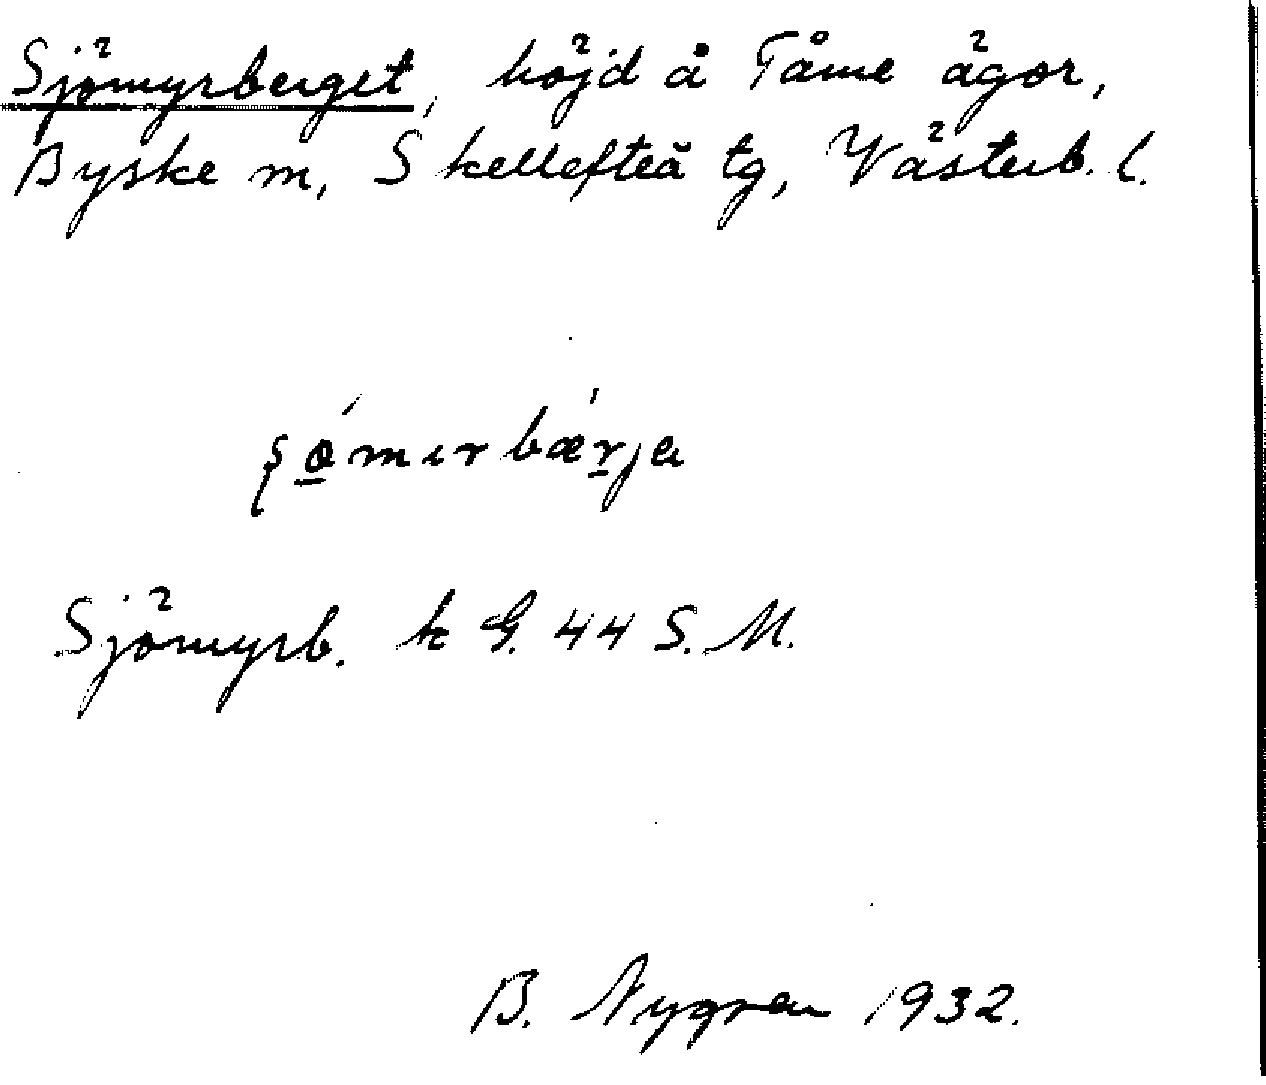 Sjömyrberget, höjd å Tåme ägor,
Byske m, Skellefteå tg, Västerb. l.
ʂǿ̱mɩrbæ̀ṟja
Sjömyrb. k G. 44 S. M.
B. Nygren 1932.